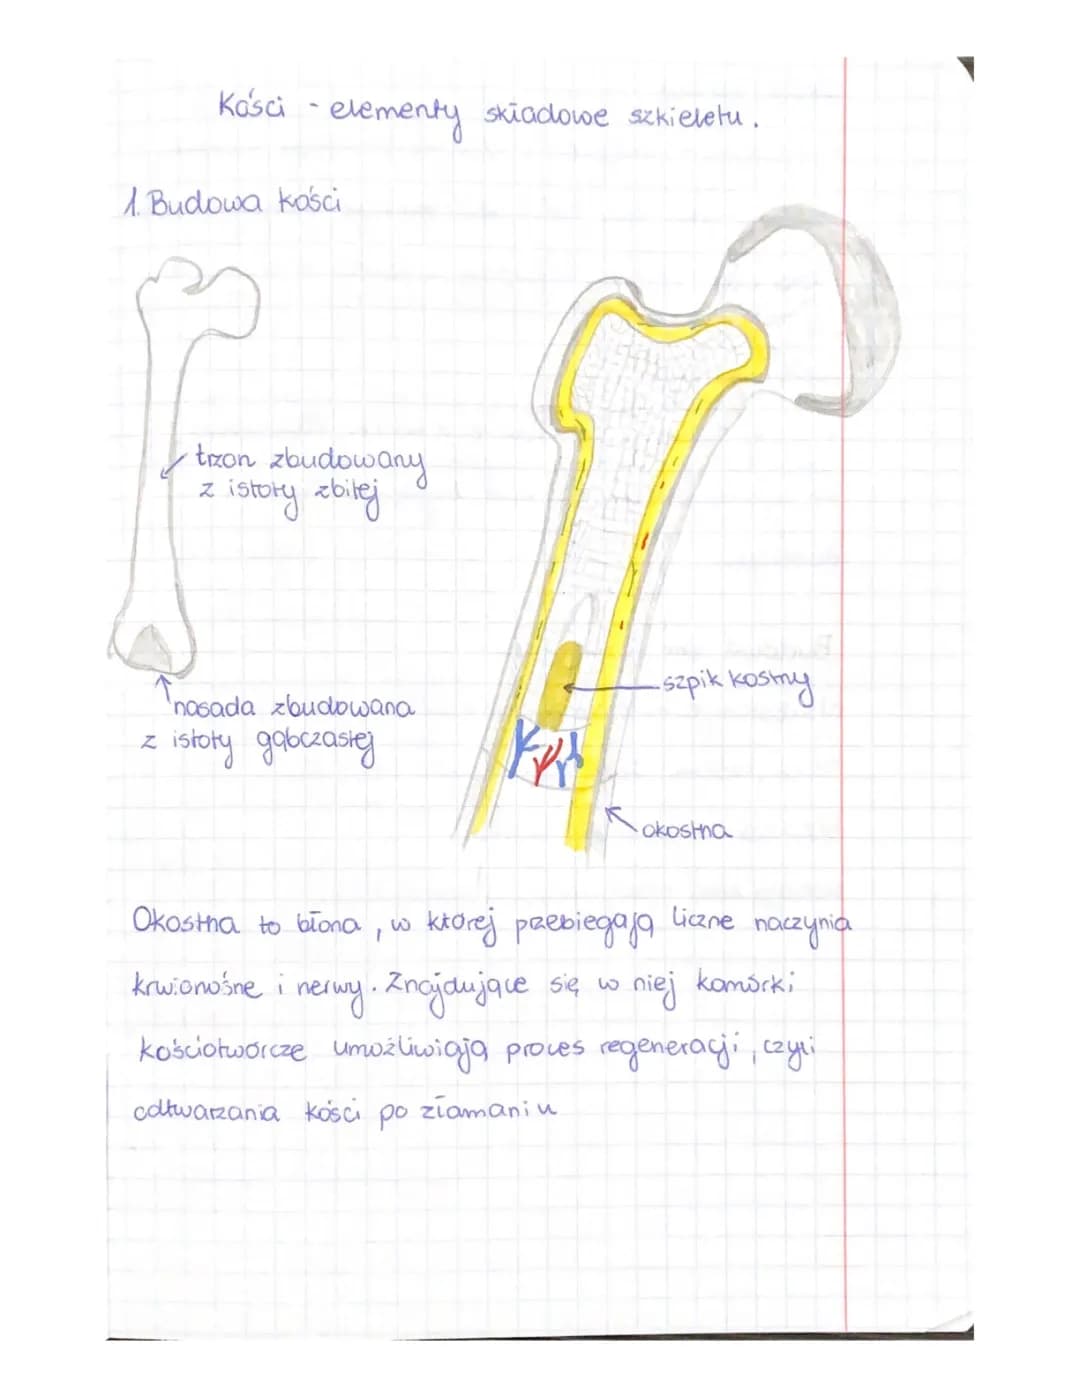 Kości - elementy składowe szkieletu.
1. Budowa kości
trzon zbudowany
z istoty zbitej
nasada zbudowana
z istoty gąbczastej
szpik kostny
okostna
Okostna to błona, w której przebiegają liczne naczynia
krwionośne i nerwy. Znajdujące się w niej komórki
kościotwórcze umożliwiają proces regeneracji, czyli
odtwarzania kości po złamaniu